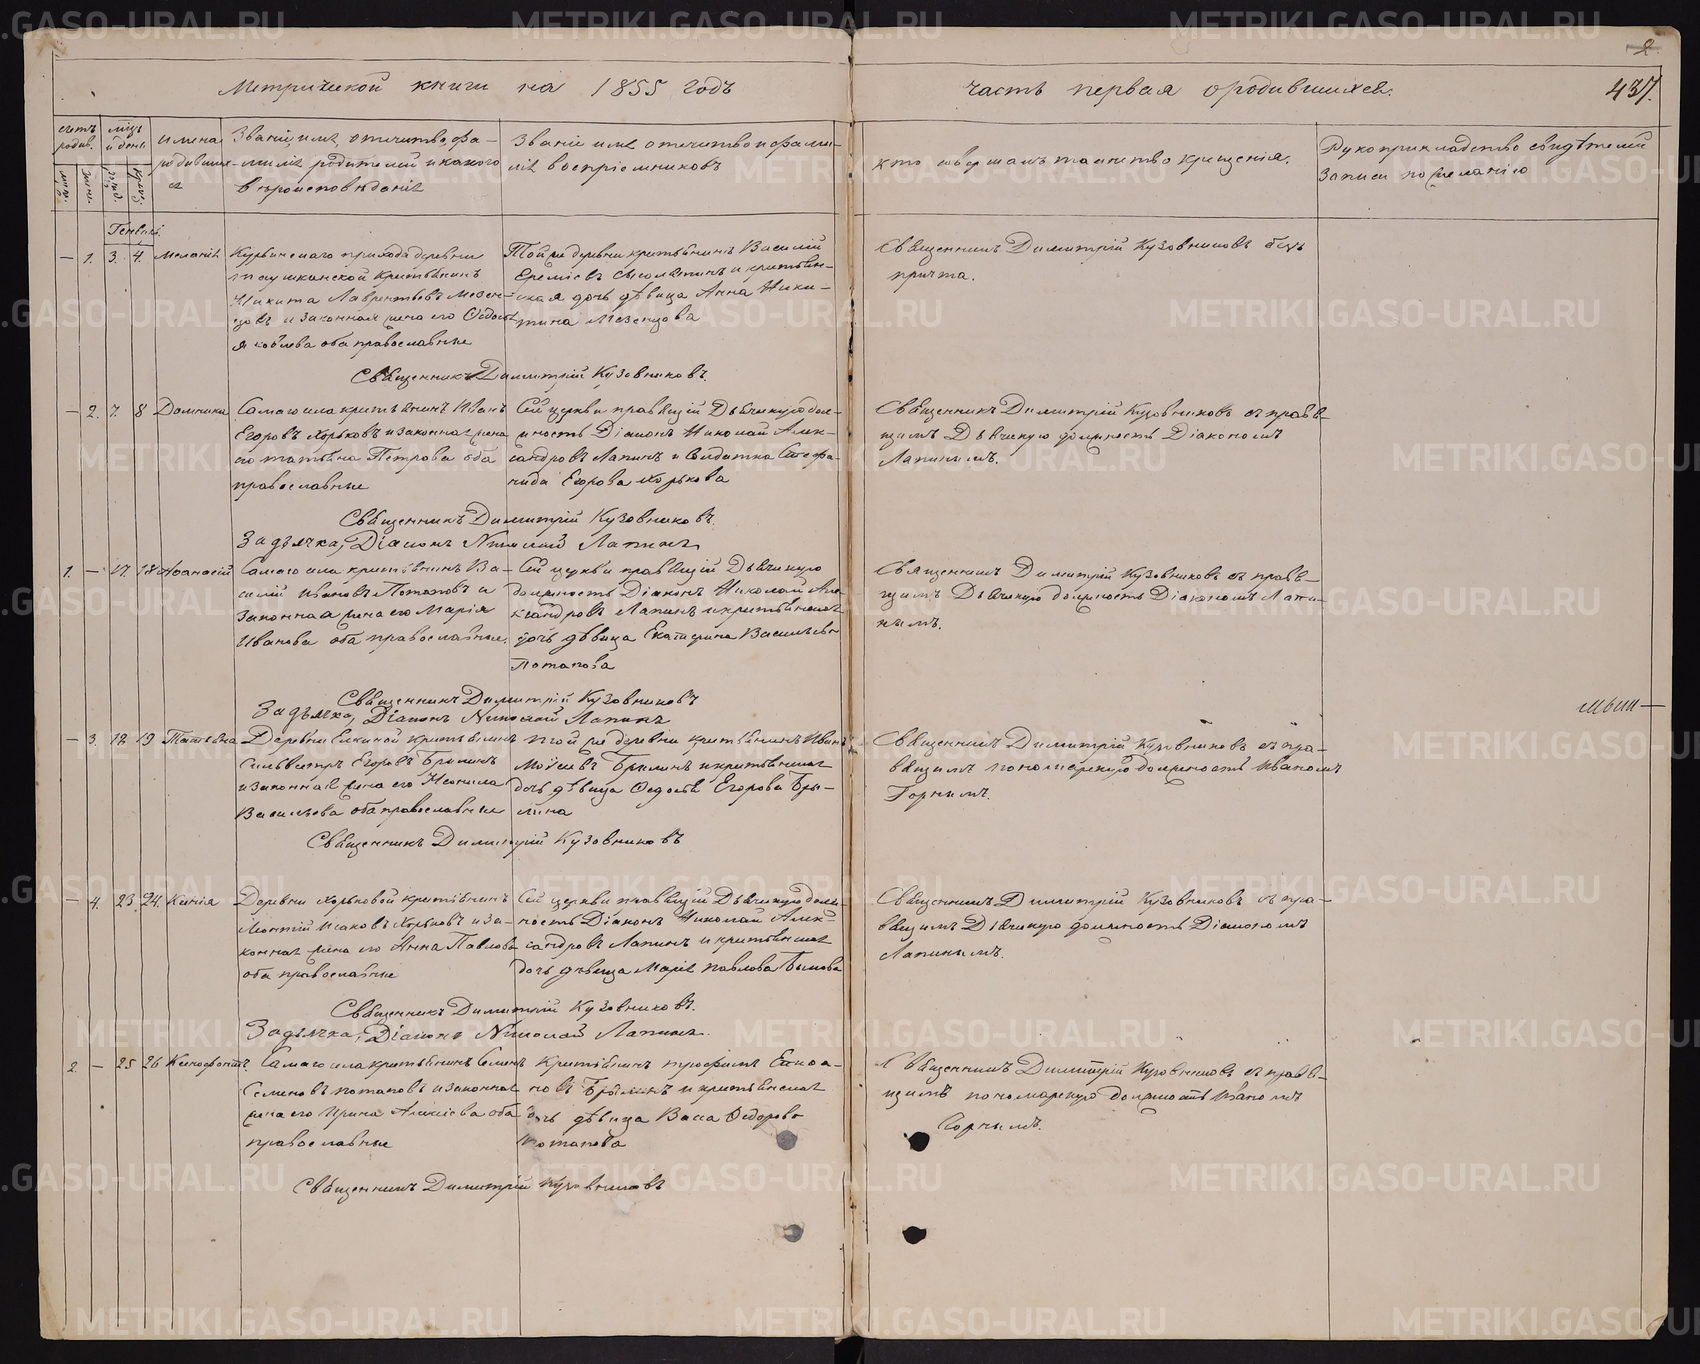 Метрической книги на 1855 годъ
часть первая о родившихся.
2
437.
счетъ родив.
мѣсяцъ и день
имена родившихся
Званіе, имя, отчество, фамилія родителей и какого вѣроисповѣданія
Званіе имя отечество и фамилія воспріемниковъ
кто совершалъ таинство крещенія.
Рукоприкладство свидѣтелей записи по желанію
Генварь.
— 1. 3. 4. Меланія
прихода деревни
крестьянинъ
Никита Лаврентьевъ Мезенцовъ и законная жена его Ѳедосья
Яковлева оба православные
Той же деревни крестьянинъ Василій
и крестьянская дочь дѣвица Анна Никитина Мезенцова
Священникъ Димитрій Кузовниковъ безъ
причта.
Священникъ Димитрій Кузовниковъ.
— 2. 7. 8 Домника
Самаго села крестьянинъ Иванъ
Егоровъ Хорьковъ и законная жена
его Татьяна Петрова оба
православные
Сей церкви правящій Дьячкую должность Діаконъ Николай Александровъ Лапинъ и солдатка Стефанида Егорова Хорькова
Священникъ Димитрій Кузовниковъ съ правящимъ Дьячкую должность Діакономъ
Лапинымъ.
Священникъ Димитрій Кузовниковъ.
За дьячка, Діаконъ Николай Лапинъ
1. — 17. 18 Аѳанасій
Самаго села крестьянинъ Василій Ивановъ Потаповъ и
законная жена его Марія
Иванова оба православные.
Сей церкви правящій Дьячкую
должность Діаконъ Николай Александровъ Лапинъ и крестьянская
дочь дѣвица Екатерина Васильева
Потапова
Священникъ Димитрій Кузовниковъ съ правящимъ Дьячкую должность Діакономъ Лапинымъ.
Священникъ Димитрій Кузовниковъ
За дьячка, Діаконъ Николай Лапинъ
— 3. 12 19 Татьяна
Деревни Елкиной крестьянинъ
Сильвестръ Егоровъ Брылинъ
и законная жена его Неонила
Васильева оба православные
той же деревни крестьянинъ Иванъ
Моисеевъ Брылинъ и крестьянская
дочь дѣвица Ѳедосья Егорова Брылина
Священникъ Димитрій Кузовниковъ съ правящимъ пономарскую должность Иваномъ
Горнымъ.
Священникъ Димитрій Кузовниковъ
— 4. 23. 24. Ксенія
Деревни Хорьковой крестьянинъ
Исаковъ Хорьковъ и законная жена его Анна Павлова
оба православные
Сей церкви правящій Дьячкую должность Діаконъ Николай Александровъ Лапинъ и крестьянская
дочь дѣвица Марія Павлова
Священникъ Димитрій Кузовниковъ съ правящимъ Дьячкую должность Діакономъ
Лапинымъ.
Священникъ Димитрій Кузовниковъ.
За дьячка, Діаконъ Николай Лапинъ.
2. — 25 26 Ксенофонтъ
Самаго села крестьянинъ
Семеновъ Потаповъ и законная
жена его Ирина оба
православные
Крестьянинъ Трофимъ
Брылинъ и крестьянская
дочь дѣвица Васса Ѳедорова
Потапова
Священникъ Димитрій Кузовниковъ съ правящимъ пономарскую должность Иваномъ
Горнымъ.
Священникъ Димитрій Кузовниковъ
METRIKI.GASO-URAL.RU